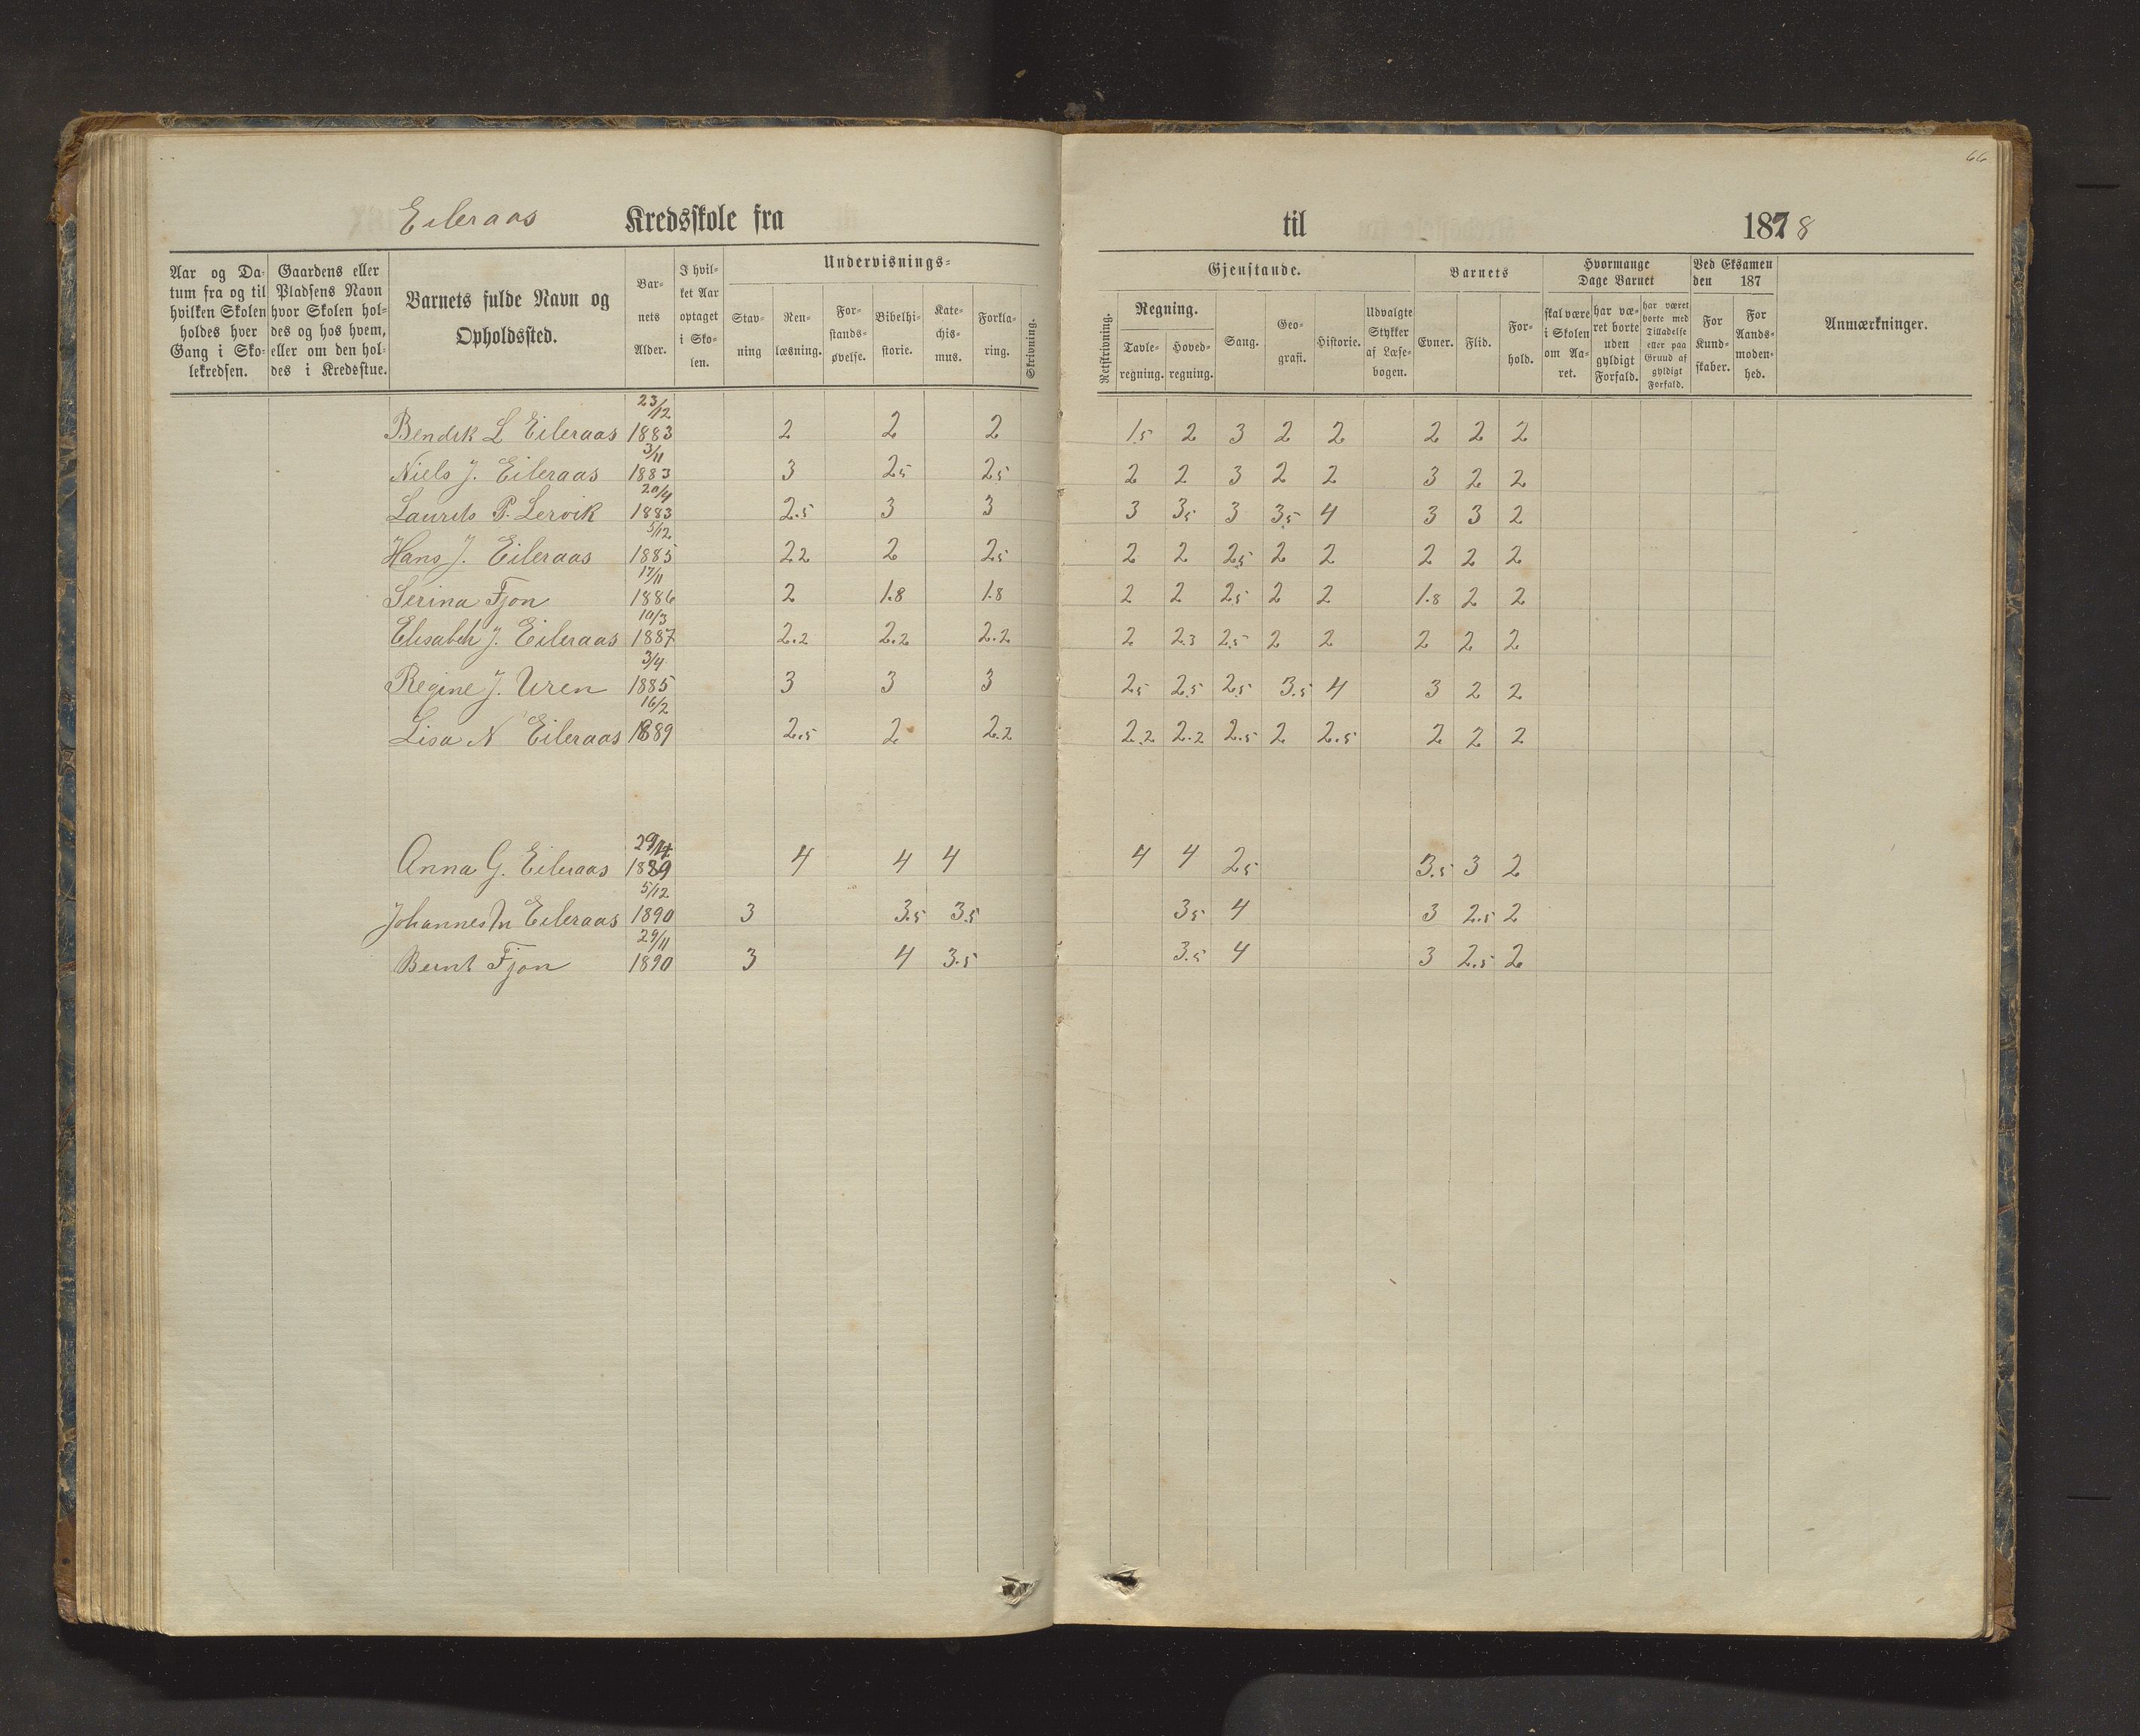 66
Eileraas Kredsskole fra til 1878
Aar og Datum fra og til hvilken Skolen holdes hver Gang i Skolekredsen.
Gaardens eller Pladsens Navn hvor Skolen holdes og hos hvem, eller om den holdes i Kredsstue.
Barnets fulde Navn og Opholdssted.
Barnets Alder.
I hvilket Aar optaget i Skolen.
Undervisnings=
Stavning
Renlæsning.
Forstandsøvelse.
Bibelhistorie.
Katechismus.
Forklaring.
Skrivning.
Gjenstande.
Retskrivning.
Regning.
Tavleregning.
Hovedregning.
Sang.
Geografi.
Historie.
Udvalgte Stykker af Læsebogen.
Barnets
Evner.
Flid.
Forhold.
Hvormange Dage Barnet
skal være i Skolen om Aaret.
har været borte uden gyldigt Forfald.
har været borte med Tilladelse eller paa Grund af gyldigt Forfald.
Ved Eksamen den 187
For Kundskaber.
For Aandsmodenhed.
Anmærkninger.
Bendik L Eileraas 23/12 1883 2 2 2 1.5 2 3 2 2 2 2 2
Niels J. Eileraas 3/11 1883 3 2.5 2.5 2 2 3 2 2 3 2 2
Laurits P. Lervik 20/4 1883 2.5 3 3 3 3.5 3 3.5 4 3 3 2
Hans J. Eileraas 5/12 1885 2.2 2 2.5 2 2 2.5 2 2 2 2 2
Serina Fjon 17/11 1886 2 1.8 1.8 2 2 2.5 2 2 1.8 2 2
Elisabeth J. Eileraas 10/3 1887 2.2 2.2 2.2 2 2.3 2.5 2 2 2 2 2
Regine J. Uren 3/4 1885 3 3 3 2.5 2.5 2.5 3.5 4 3 2 2
Lisa N Eileraas 16/2 1889 2.5 2 2.2 2.2 2.2 2.5 2 2.5 2 2 2
Anna G. Eileraas 1889 4 4 4 4 4 2.5 3.5 3 2
Johannes N Eileraas 5/12 1890 3 3.5 3.5 3.5 4 3 2.5 2
Bernt Fjon 29/11 1890 3 4 3.5 3.5 4 3 2.5 2